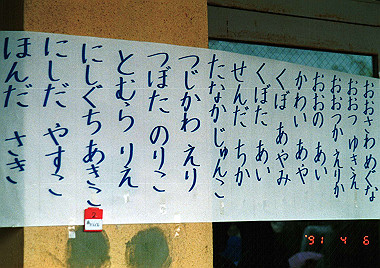 おおさわ めぐな
おおつ ゆきえ
おおつか えりか
おおの あい
かわい あや
くぼ あやみ
くぼた あい
せんだ ちか
たなか じゅんこ
つじかわ えり
つぼた のりこ
とむら りえ
にしぐち あきこ
にしだ やすこ
ほんだ さき
2
'91 4 6